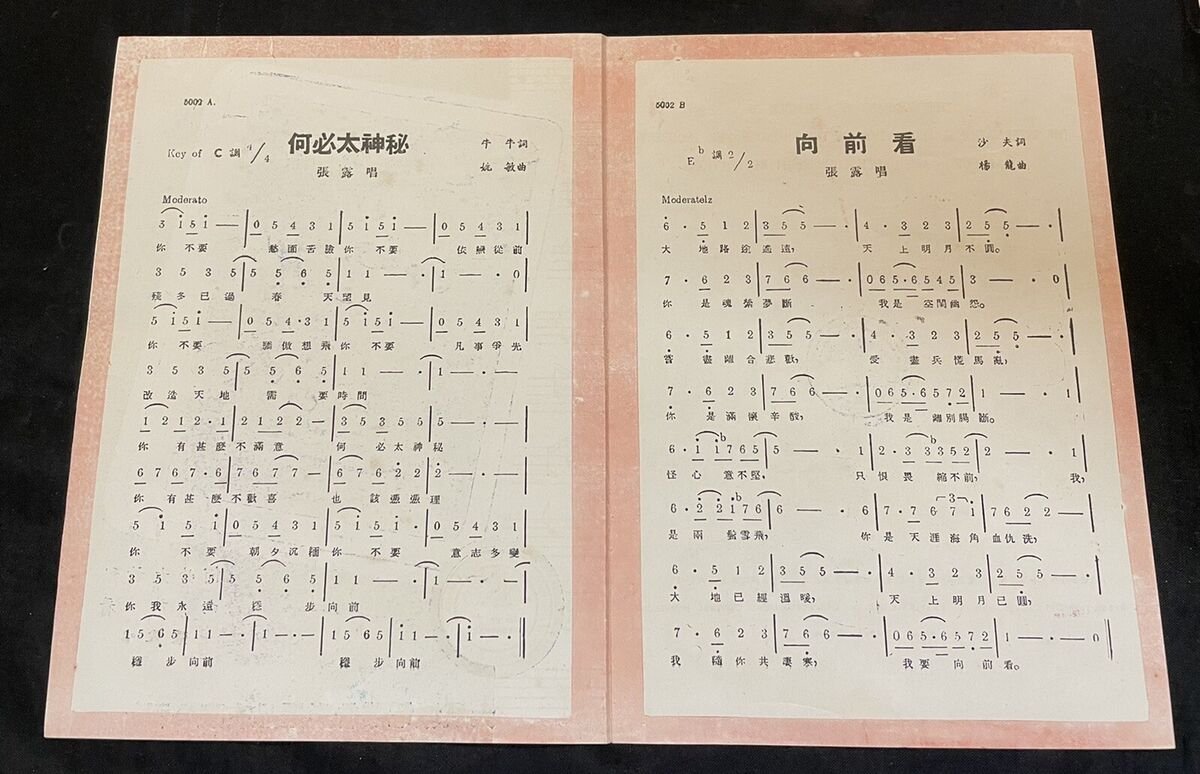 5002 A.
何必太神秘
Key of C 調 4/4
牛牛詞
張露唱
姚敏曲
Moderato
5 i 5 i — | 0 5 4 3 1 | 5 i 5 i — | 0 5 4 3 1 |
你不要 愁面苦臉你不要 依戀從前
3 5 3 5 | 5 5 6 5 | 1 1 — · | 1 — · 0
殘多已過 春 天罡見
5 i 5 i — | 0 5 4 · 3 1 | 5 i 5 i — | 0 5 4 3 1 |
你不要 驕傲想飛你不要 凡事爭先
3 5 3 5 | 5 5 6 5 | 1 1 — · | 1 — · — |
改造天地 需 要時間
1 2 1 2 · 1 | 2 1 2 2 — | 3 5 3 5 5 5 |
你有甚麼不滿意 何必太神秘
6 7 6 7 · 6 | 7 6 7 7 — | 6 7 6 2 2 2 | 2 — · — |
你有甚麼不歡喜 也該憑憑理
5 i 5 i — | 0 5 4 3 1 | 5 i 5 i · — | 0 5 4 3 1 |
你不要 朝夕沉緬你不要 意志多變
3 5 3 5 | 5 5 6 5 | 1 1 — · | 1 — · — |
你我永遠 穩 步向前
1 5 6 5 1 1 — · | 1 — · | 1 5 6 5 · i i — · | i — · ‖
穩步向前 穩步向前
5002 B
向前看
E b 調 2/2
沙夫詞
張露唱
楊龍曲
Moderatelz
6 · 5 1 2 | 3 5 5 — · | 4 · 3 2 3 | 2 5 5 — · |
大地路途遙遠, 天上明月不圓。
7 · 6 2 3 | 7 6 6 — · | 0 6 5 · 6 5 4 5 | 3 — · 0 |
你是魂縈夢斷 我是空閨幽怨。
6 · 5 1 2 | 3 5 5 — · | 4 · 3 2 3 | 2 5 5 — · |
嘗盡離合悲歡, 愛盡兵慌馬亂,
7 · 6 2 3 | 7 6 6 — · | 0 6 5 · 6 5 7 2 | 1 — · 1 |
你是滿懷辛酸, 我是離別腸斷。
6 · i i b 7 6 5 | 5 — · 1 | 2 · 3 3 b 3 5 2 | 2 — · 1 |
怪心意不堅, 只恨畏縮不前, 我,
6 · 2 2 i b 7 6 | 6 — · 6 | 7 · 7 6 7 i | 7 6 2 2 — · |
是兩鬢雪飛, 你是天涯海角血仇洗,
6 · 5 1 2 | 3 5 5 — · | 4 · 3 2 3 | 2 5 5 — · |
大地已經溫暖, 天上明月已圓,
7 · 6 2 3 | 7 6 6 — · | 0 6 5 · 6 5 7 2 | 1 — · 0 ‖
我隨你共凄寒, 我要向前看。